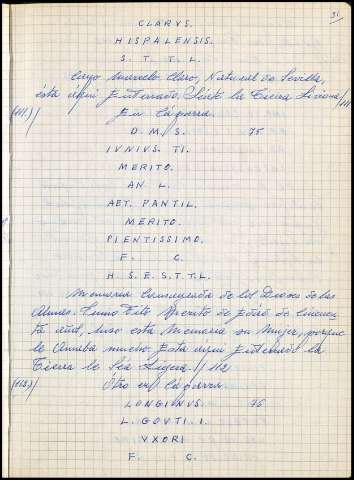 31
CLARVS.
HISPALENSIS.
S. T. T. L.
Cayo Marcelo Claro, Natural de Sevilla,
está aquí Enterrado. Séate la Tierra Liviana/111
(111)/ En Cáparra.
D. M. S. 75
IVNIVS. TI.
MERITO.
AN L.
AET. PANTIL.
MERITO.
PIENTISSIMO.
F. C.
H. S. E. S. T. T. L.
Memoria Consagrada de los Dioses de las
Almas. Junio Tito Merito de edad de Cincuen
ta años, puso esta Memoria su Mujer, porque
le Amaba mucho. Está aquí Enterrado la
Tierra le Sea Ligera. / 112
(113)/ Otro en Cáparra.
LONGINVS. 76
L. GOVTI. I.
VXORI
F. C.